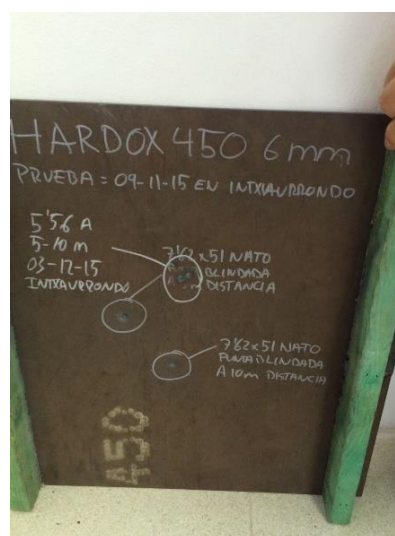 HARDOX 450 6mm
PRUEBA = 09-11-15 EN INTXAURRONDO
5'56 A
5-10 m
03-12-15
INTXAURRONDO
7'62x51 NATO
BLINDADA
DISTANCIA
7'62x51 NATO
PUNTA BLINDADA
A 10m DISTANCIA
450